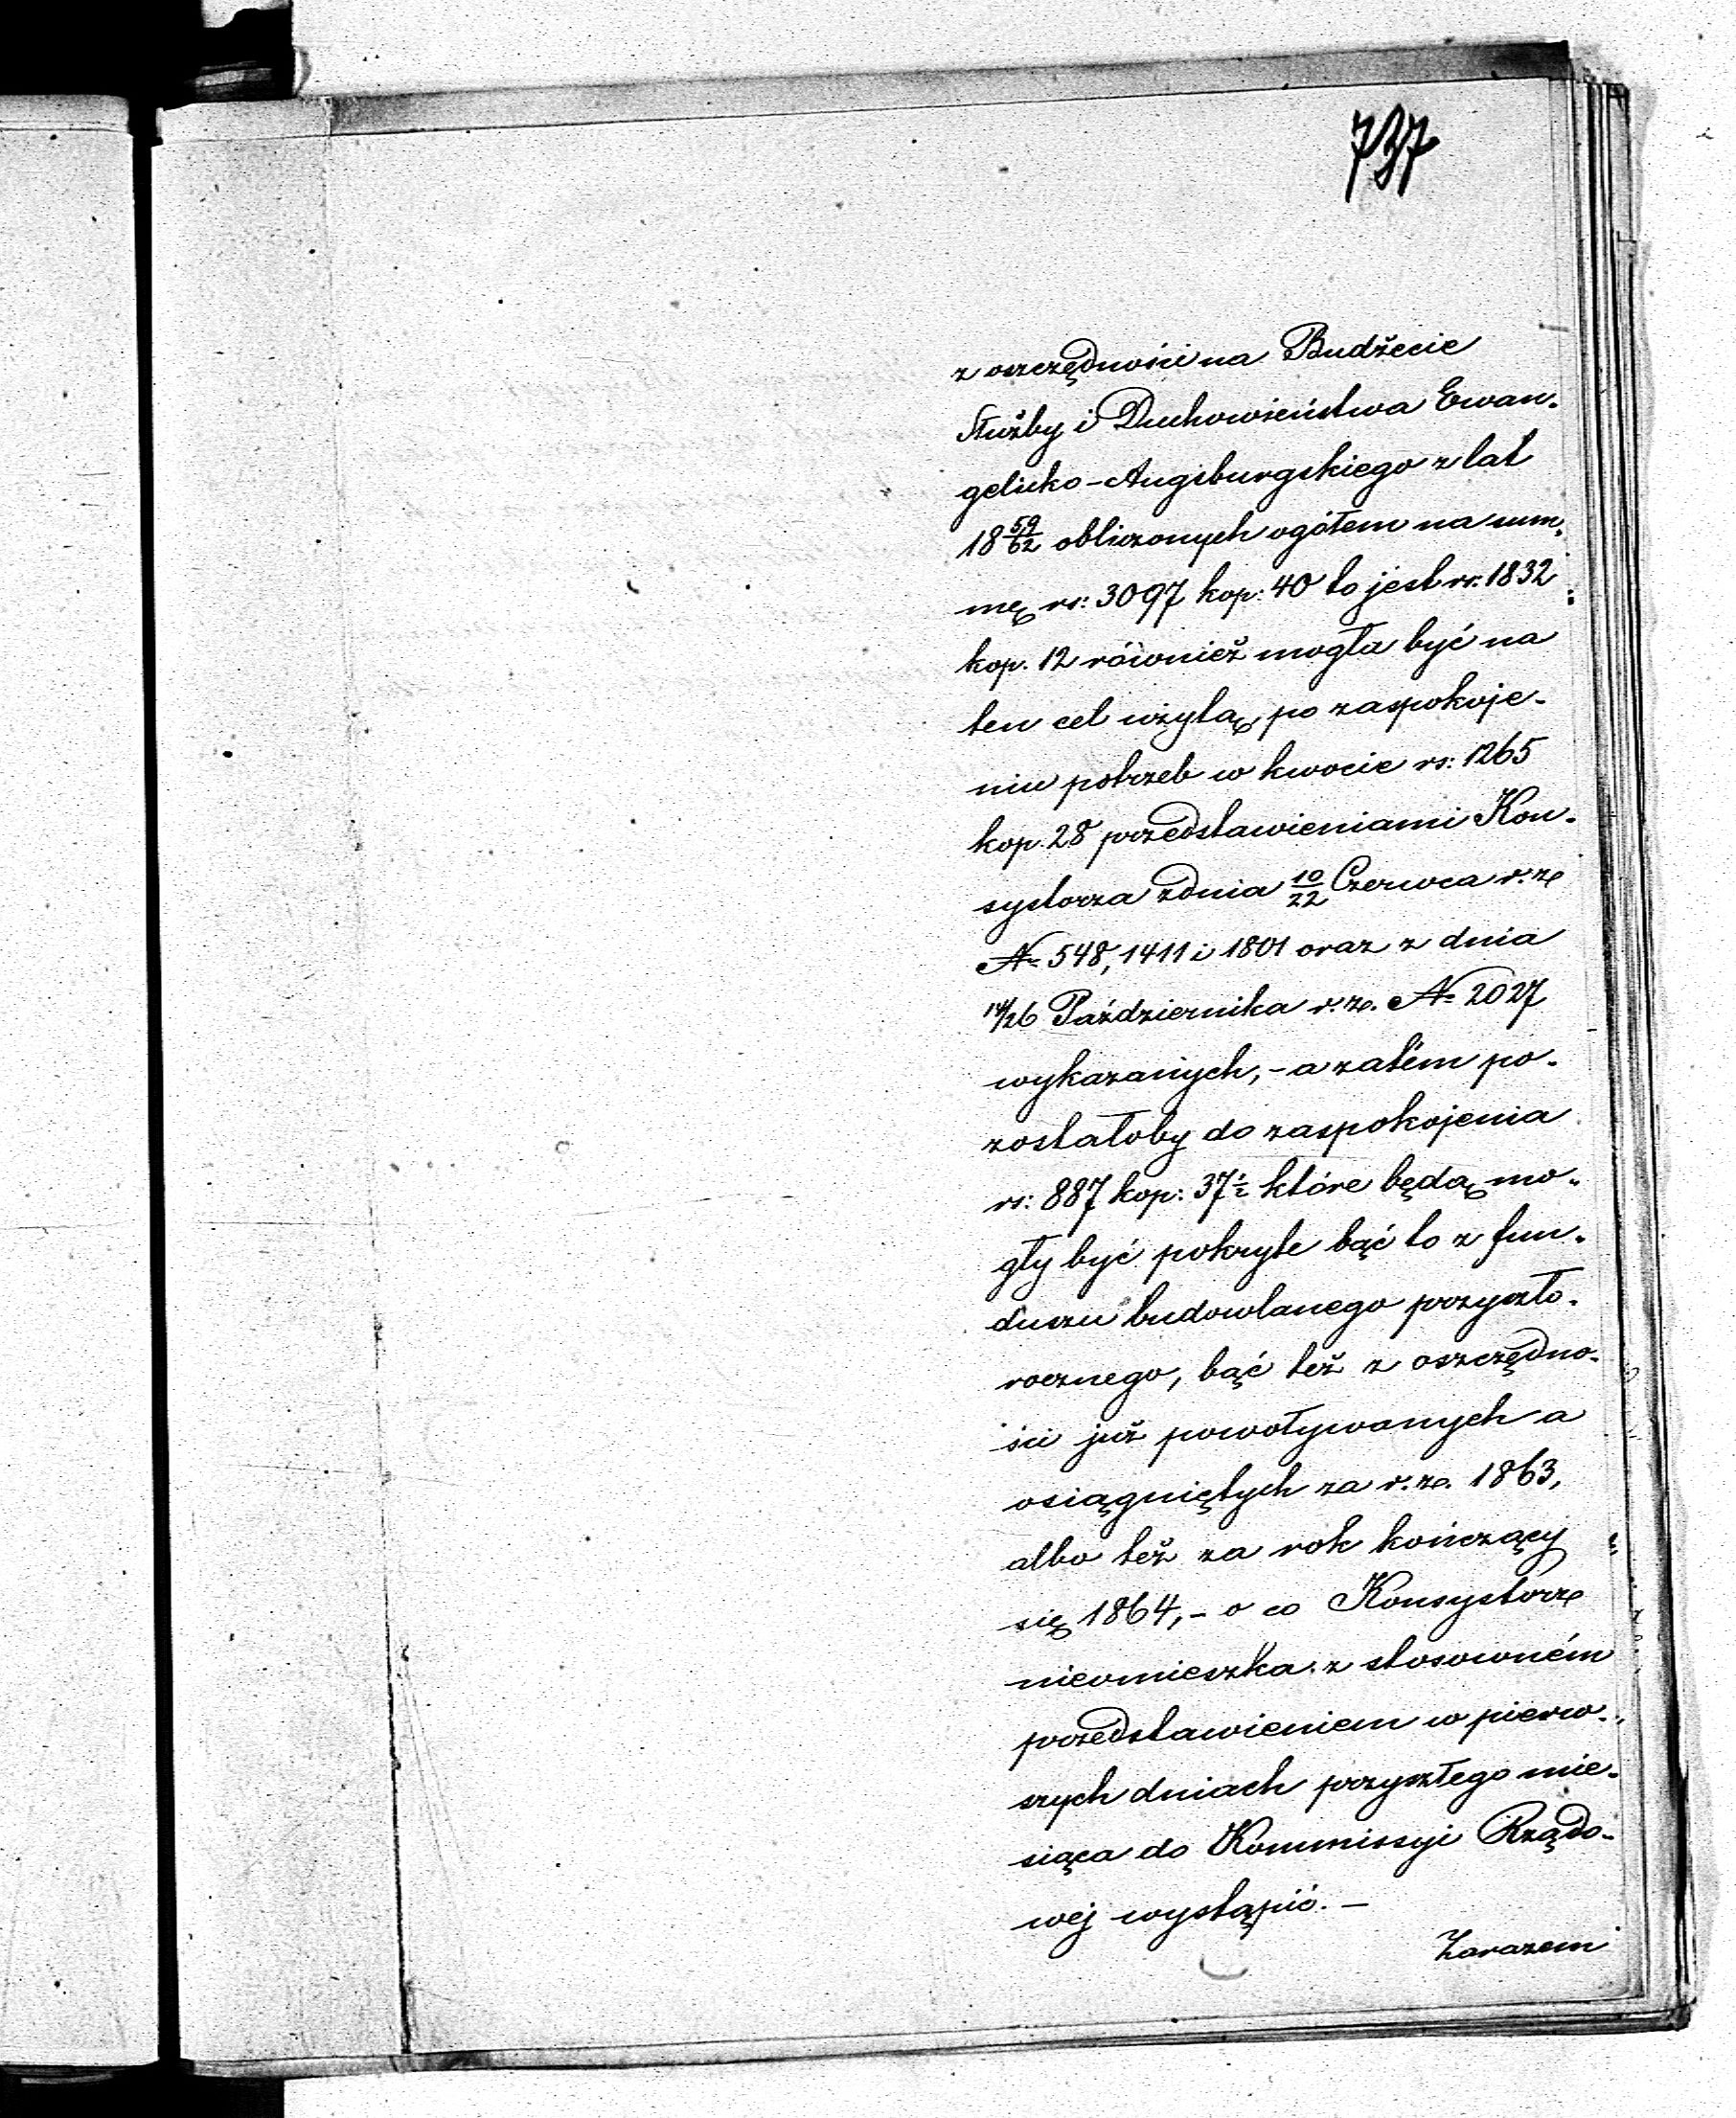 737
z oszczędności na Budżecie
Służby i Duchowieństwa Ewan-
gelicko-Augsburgskiego z lat
18 59/62 obliczonych ogółem na sum-
mę rs: 3097 kop: 40 to jest rs: 1832
kop. 12 również mogła być na
ten cel użytą, po zaspokoje-
niu potrzeb w kwocie rs: 1265
kop. 28 przedstawieniami Kon-
systorza z dnia 10/22 Czerwca r. z.
N 548, 1411 i 1801 oraz z dnia
14/26 Października r. z. N 2027
wykazanych, - a zatém po-
zostałoby do zaspokojenia
rs: 887 kop: 37½ które będą mo-
gły być pokryte bąć to z fun-
duszu budowlanego przyszło-
rocznego, bąć też z oszczędno-
ści już powoływanych a
osiągniętych za r. z. 1863,
albo też za rok kończący
się 1864, - o co Konsystórz
nieomieszka z stosowném
przedstawieniem w pierw-
szych dniach przyszłego mie-
siąca do Kommissyi Rządo-
wéj wystąpić. -
Zarazem